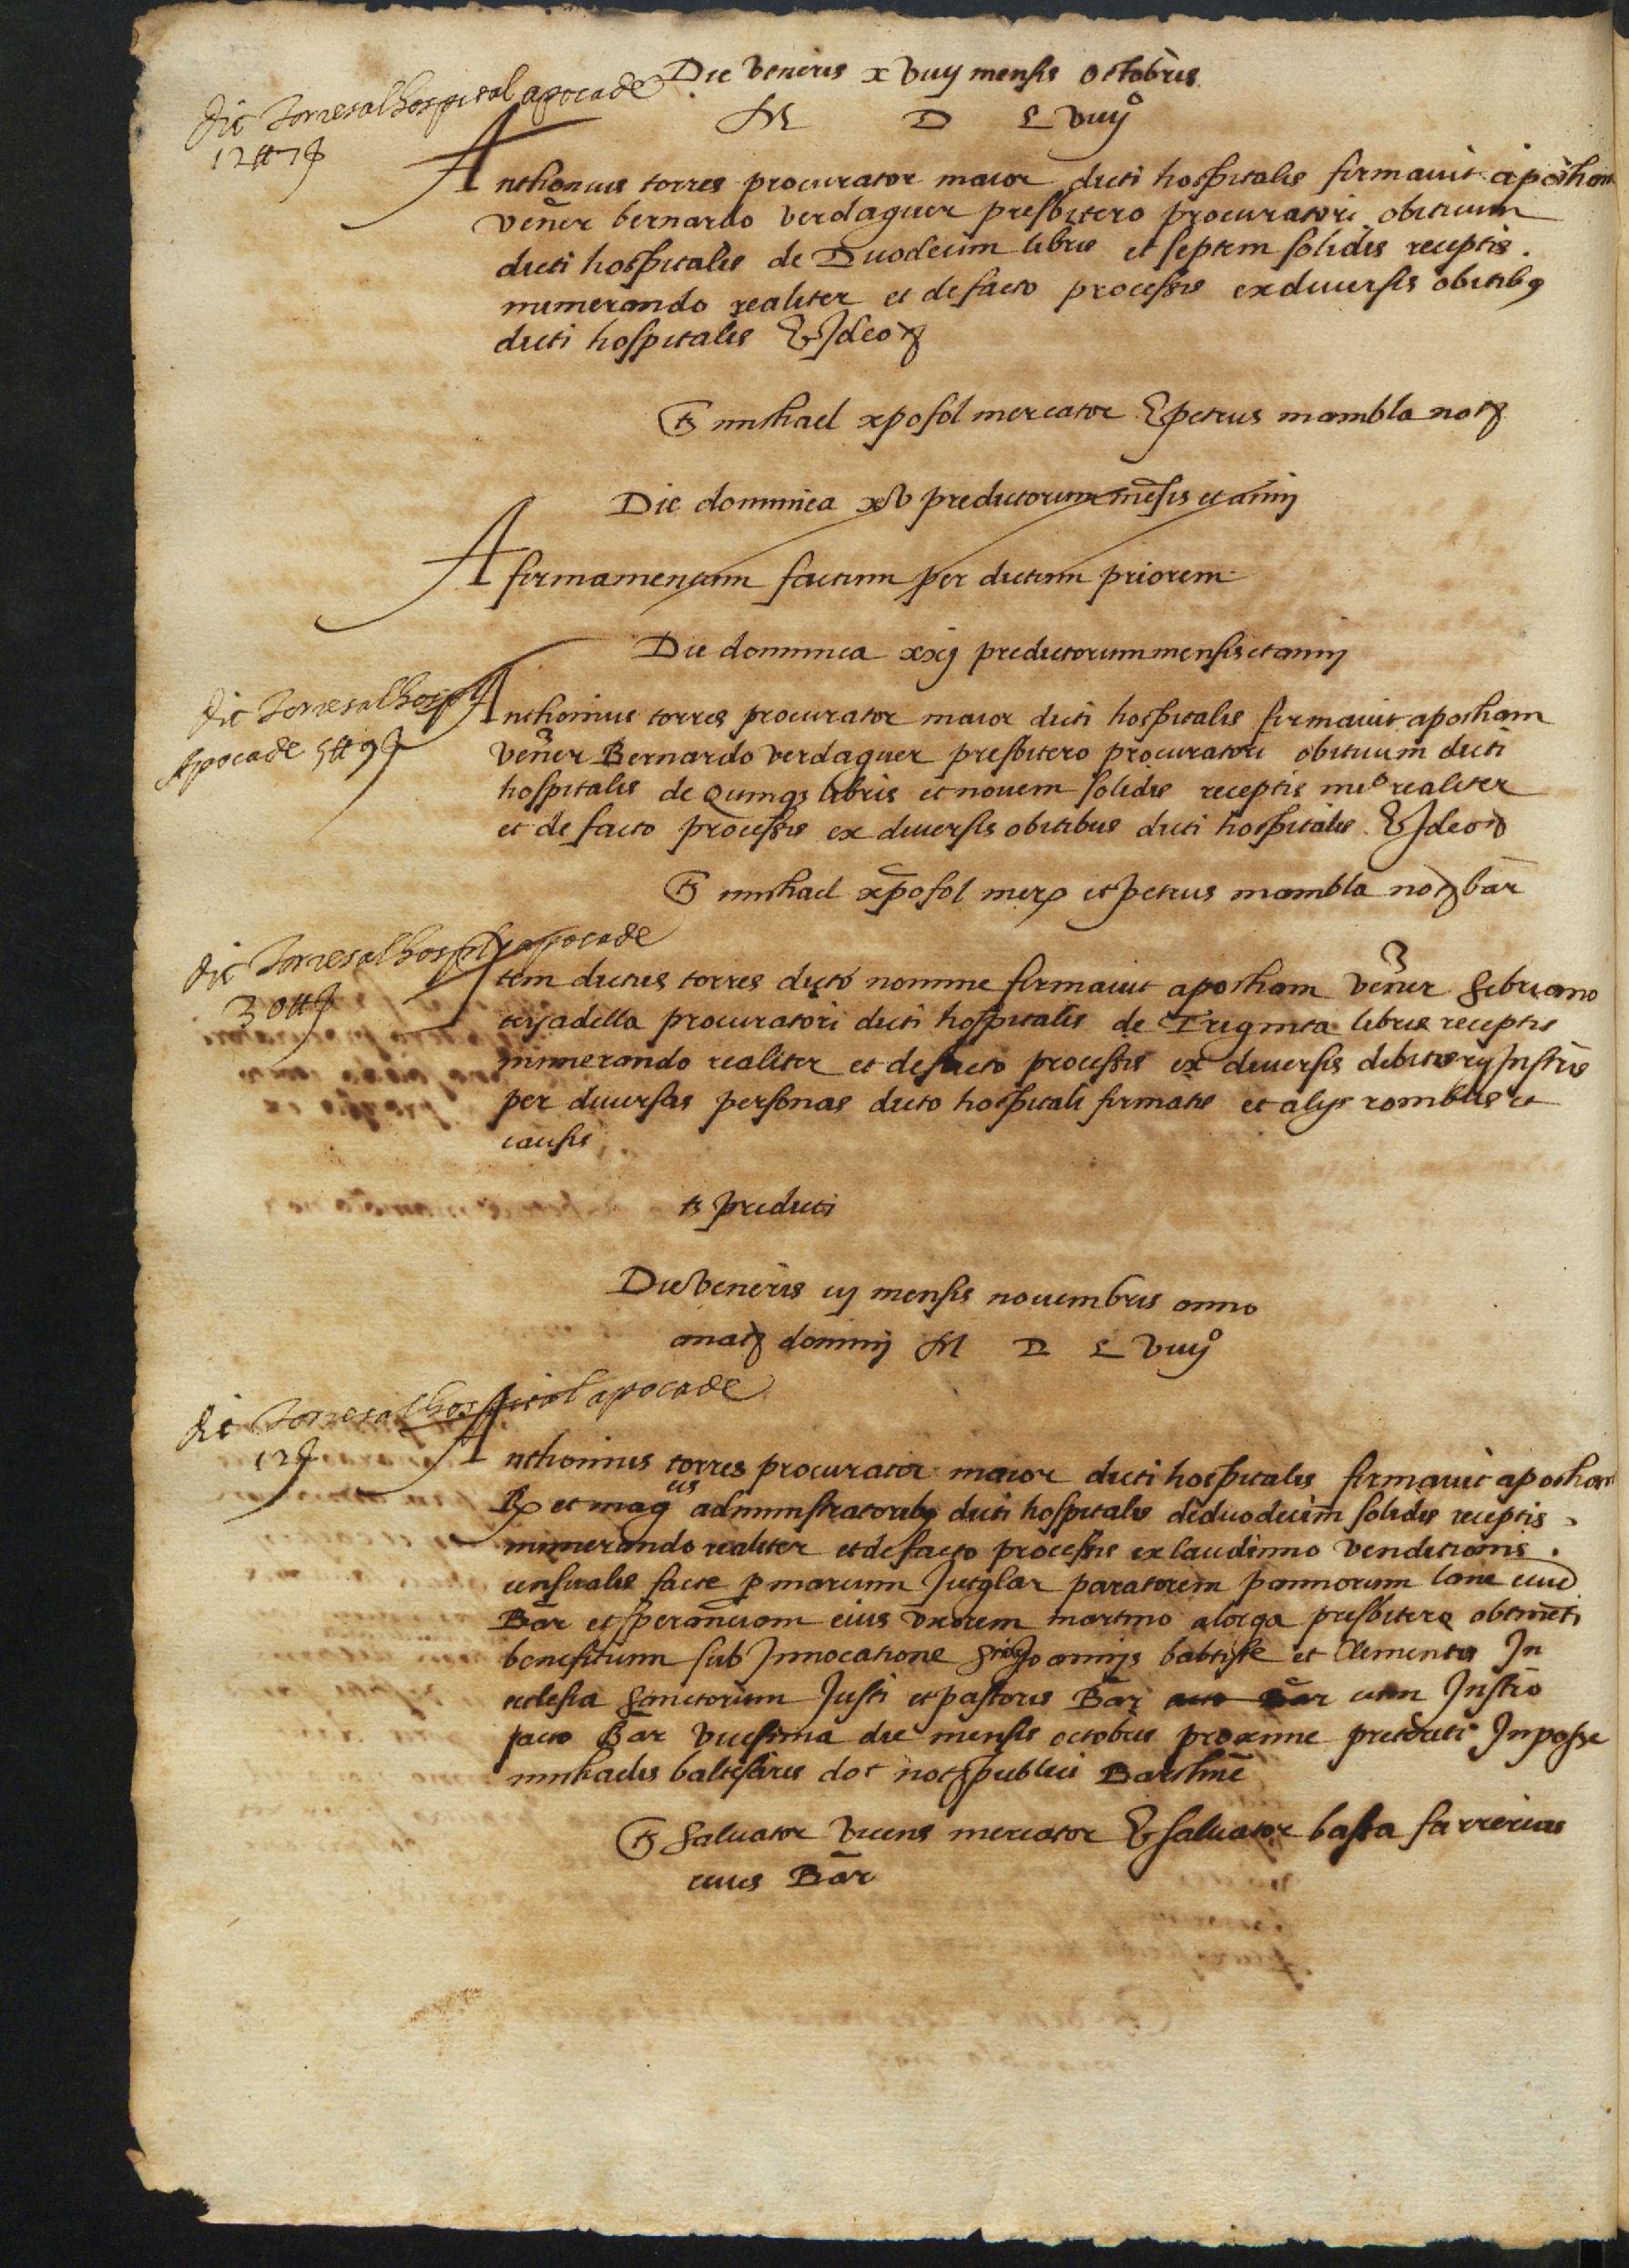 Die veneris xviiij mensis octobris
M D L viiijº
dit Torres al hospital apoca de
12 ll 7 s
Anthonius torres procurator maior dicti hospitalis firmauit apocham
vener bernardo verdaguer presbitero procuratori obituum
dicti hospitalis de Duodecim libris et septem solidis receptis.
numerando realiter et de facto processis ex diuersis obitibus
dicti hospitalis Et Ideo etc
ts michael xpofol mercator Et petrus mambla not
Die dominica xv predictorum mensis et anni
Afirmamentum factum per dictum priorem
Die dominica xxij predictorum mensis et anni
dit Torres al hospl
Apoca de 5 ll 9 s
Anthonius torres procurator maior dicti hospitalis firmauit apocham
vener Bernardo verdaguer presbitero procuratori obituum dicti
hospitalis de Quinqz libris et nouem solidis receptis nuo realiter
et de facto processis ex diuersis obitibus dicti hospitalis Et Ideo etc
ts michael xpofol merx et petrus mambla not bar
dit Torres al hospl apoca de
30 ll s
Item dictus torres dicto nomine firmauit apocham vener Sebriano
seriadella procuratori dicti hospitalis de Triginta libris receptis
numerando realiter et de facto processis ex diuersis debitis Instris
per diuersas personas dicto hospitali firmatis et alijs rombus et
causis
ts predicti
Die Veneris iij mensis nouembris anno
a nat domini M D L viiijº
dit Torres al hospital apoca de
12 s
Anthonius torres procurator maior dicti hospitalis firmauit apocham
Rx et magcis administratoribus dicti hospitalis de duodecim solidis receptis
numerando realiter et de facto processis ex laudimio venditionis
censualis facte p marcum Jutglar paratorem pannorum lane ciuem
Bar et speranciam eius vxorem martino aloiga presbitero obtineti
beneficium sub Inuocatione Sti Joannis babtiste et Clementis In
ecclesia Sanctorum Justi et pastoris Bar cum Instro
facto Bar vicesima die mensis octobris proxime preteriti In posse
michaelis baltesaris dot not publici Barchne
ts Saluator vicens mercator Et saluator basta farrerius
ciues Bar